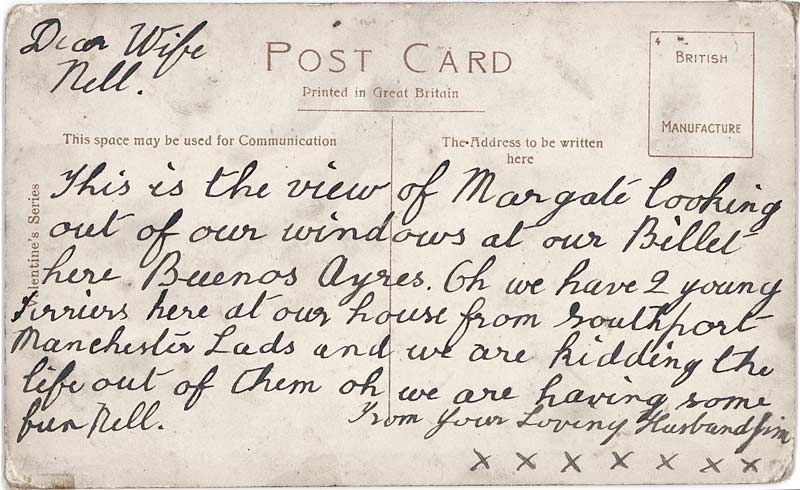 Dear Wife
Nell.
POST CARD
Printed in Great Britain
4
BRITISH
MANUFACTURE
This space may be used for Communication
The Address to be written
here
Valentine's Series
This is the view of Margate looking
out of our windows at our Billet
here Buenos Ayres. Oh we have 2 young
Terriers here at our house from Southport
Manchester Lads and we are kidding the
life out of them oh we are having some
fun Nell.
From Your Loving Husband Jim
x x x x x x x